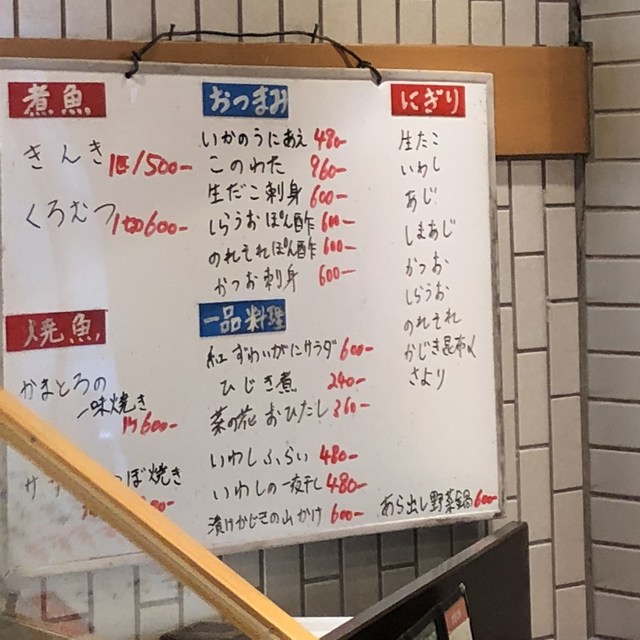 煮魚
きんき 1匹1500-
くろむつ 1切600-
焼魚
かまとろの
一味焼き
1ケ600-
ぼ焼き
おつまみ
いかのうにあえ 480-
このわた 960-
生だこ刺身 600-
しらうおぽん酢 600-
のれそれぽん酢 600-
かつお刺身 600-
一品料理
紅ずわいがにサラダ 600-
ひじき煮 240-
菜の花おひたし 360-
いわしふらい 480-
いわしの一夜干し 480-
漬けかじきの山かけ 600-
にぎり
生たこ
いわし
あじ
しまあじ
かつお
しらうお
のれそれ
かじき昆布〆
さより
あら出し野菜鍋 600-